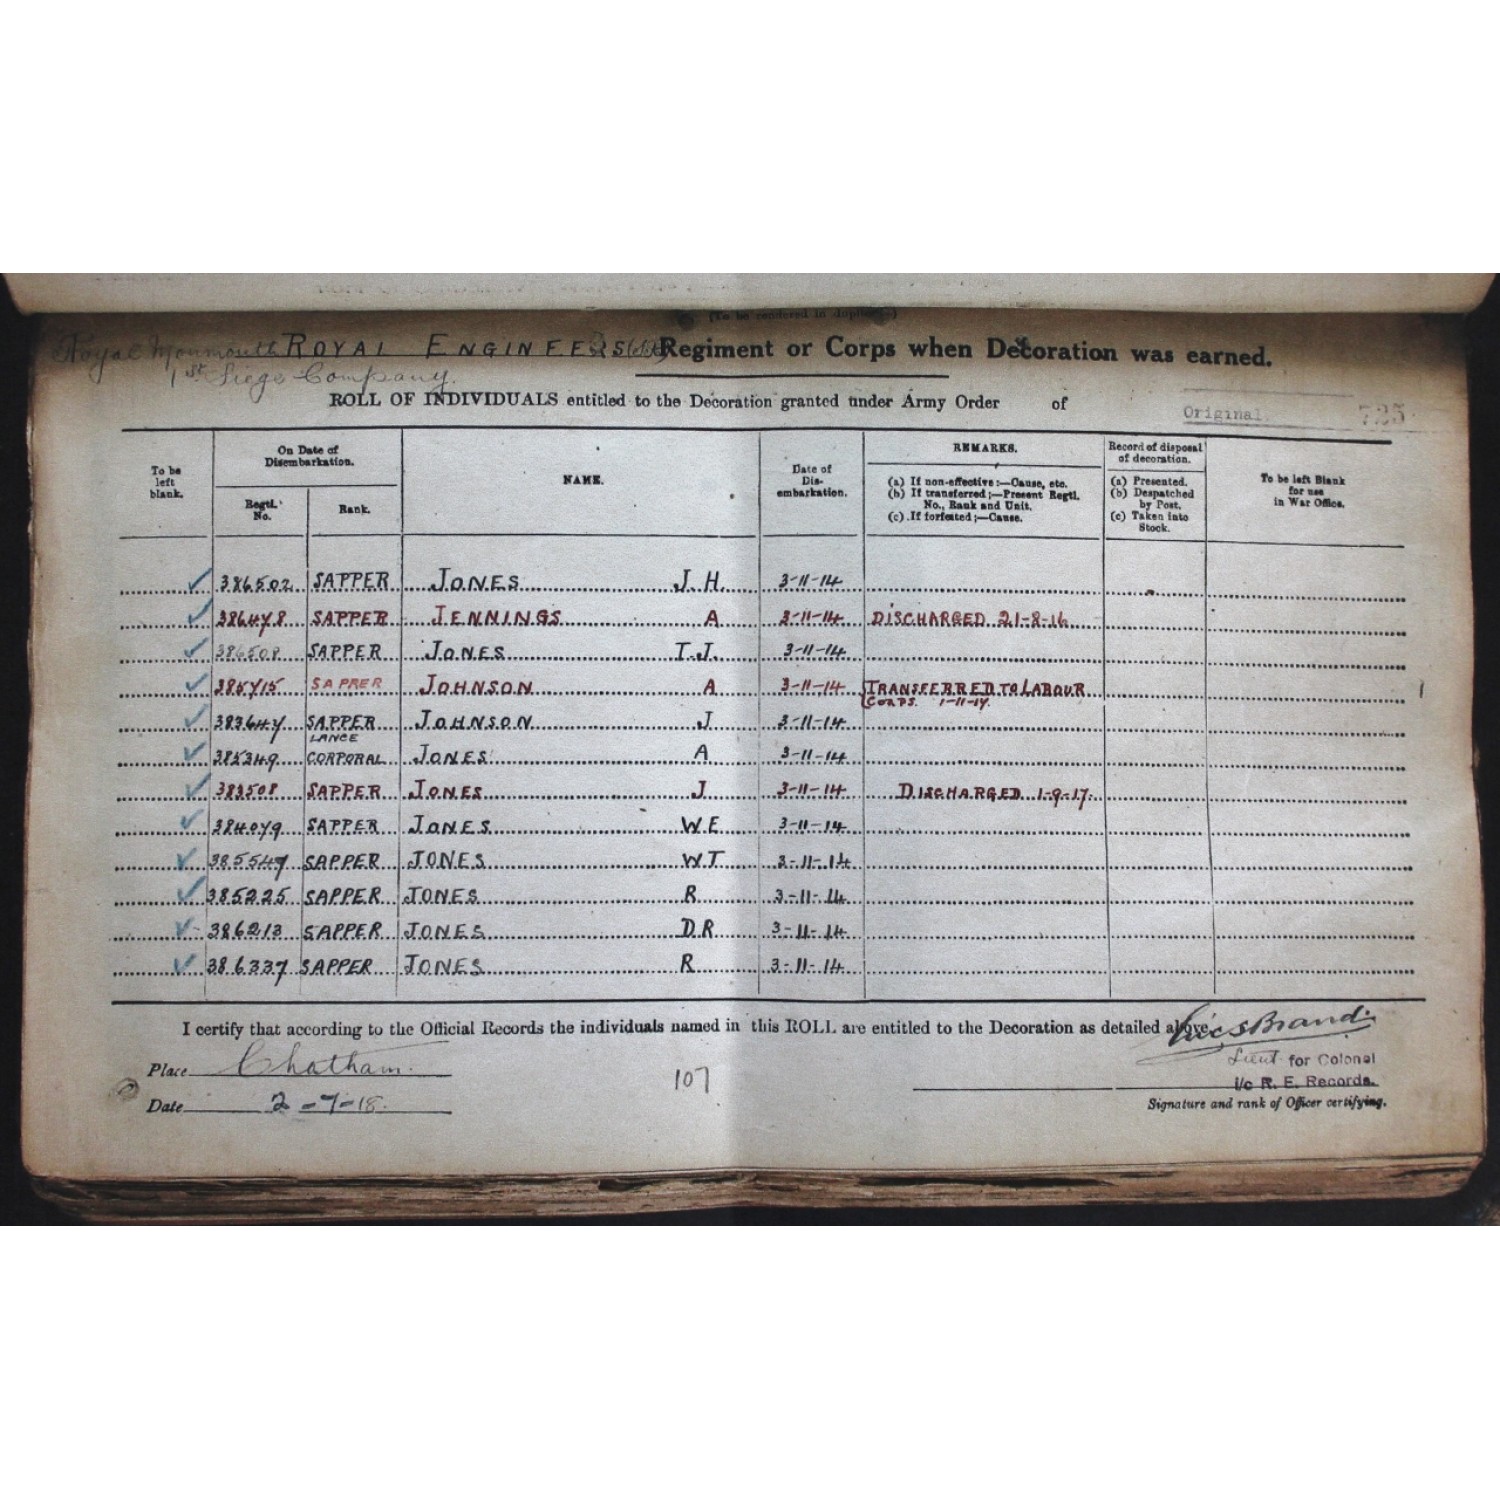 (To be rendered in duplicate)
Royal Monmouth ROYAL ENGINEERS Regiment or Corps when Decoration was earned.
1st Siege Company.
ROLL OF INDIVIDUALS entitled to the Decoration granted under Army Order of
Original 725
To be left blank.
On Date of Disembarkation.
Regtl. No.
Rank.
NAME.
Date of Dis-embarkation.
REMARKS.
(a) If non-effective :—Cause, etc.
(b) If transferred ;—Present Regtl. No., Rank and Unit.
(c) If forfeited ;—Cause.
Record of disposal of decoration.
(a) Presented.
(b) Despatched by Post.
(c) Taken into Stock.
To be left Blank for use in War Office.
386502 SAPPER JONES J.H. 3-11-14
386478 SAPPER JENNINGS A 3-11-14 DISCHARGED 21-8-16
386508 SAPPER JONES T.J. 3-11-14
385715 SAPPER JOHNSON A 3-11-14 TRANSFERRED TO LABOUR CORPS. 1-11-17.
383647 SAPPER JOHNSON J 3-11-14
385349 LANCE CORPORAL JONES A 3-11-14
383508 SAPPER JONES J 3-11-14 DISCHARGED 1-9-17.
384079 SAPPER JONES W E 3-11-14
385547 SAPPER JONES W T 3-11-14
385225 SAPPER JONES R 3-11-14
386213 SAPPER JONES D R 3-11-14
386337 SAPPER JONES R 3-11-14
I certify that according to the Official Records the individuals named in this ROLL are entitled to the Decoration as detailed above.
Place Chatham.
Date 2-7-18.
107
Eric S Brand.
Lieut for Colonel
i/c R. E. Records.
Signature and rank of Officer certifying.